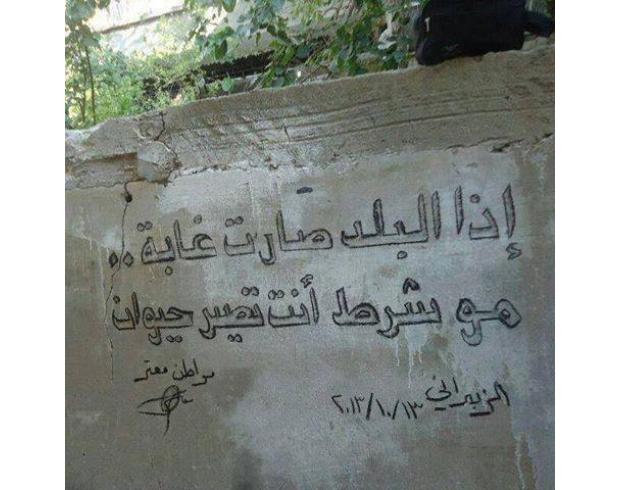 إذا البلد صارت غابة..
مو شرط أنت تصير حيوان
مواطن معتر
الزبداني ٢٠١٣/١٠/١٣